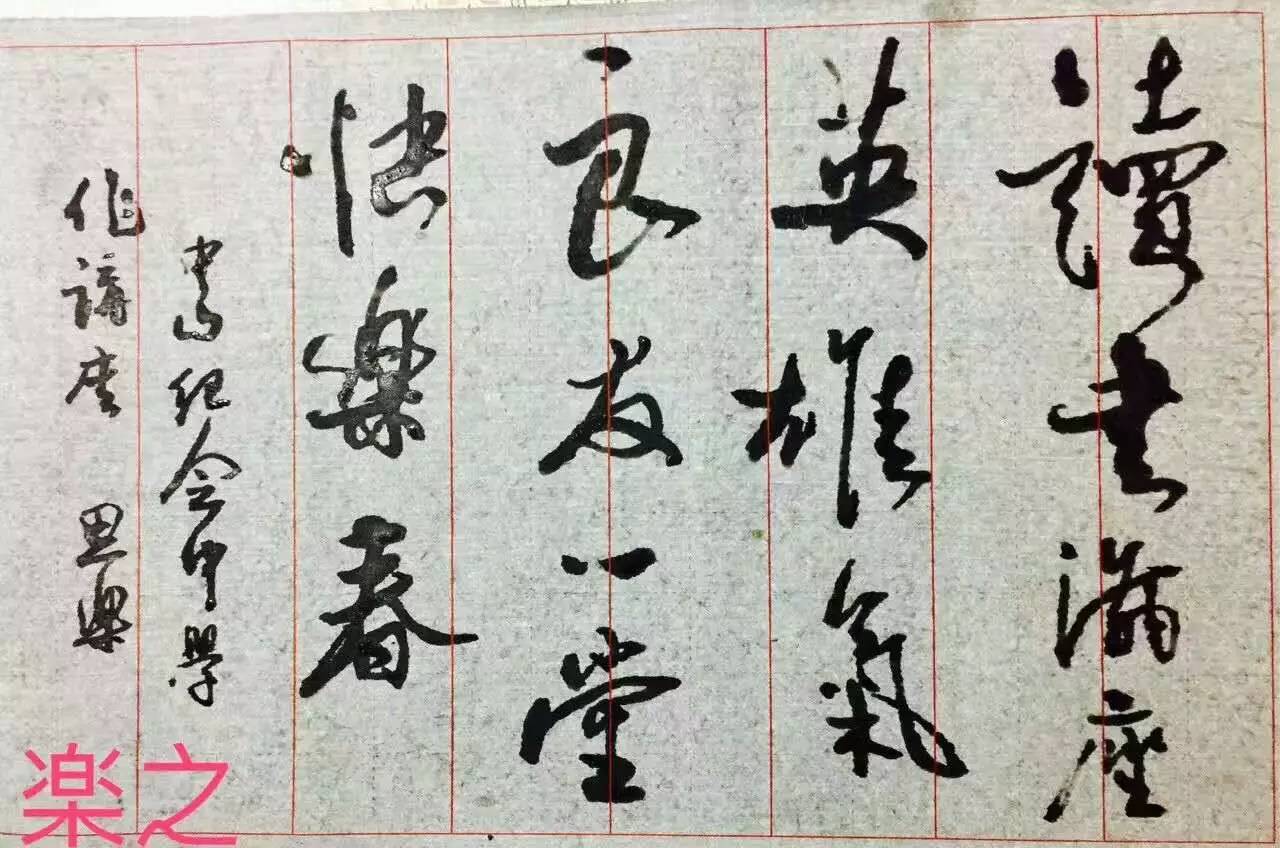 讀書滿座
英雄氣
良友一堂
快樂春
中山紀念中學
作講座 思樂
楽之